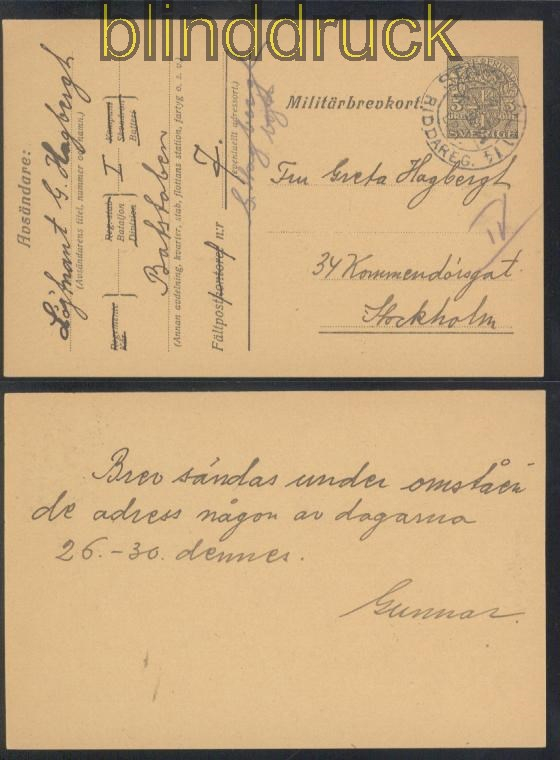 blinddruck
Avsändare:
Löjtnant G. Hagbergt
(Avsändarens titel, nummer och namn.)
Regemente
Kår
Reg.-stab
Bataljon
Division
I
Kompani
Skvadron
Batteri
Batstaben
(Annan avdelning, kvarter, stab, flottans station, fartyg o. s. v.)
Fältpostkontoret n:r 7.
(eventuellt adressort.)
Militärbrevkort.
SVERIGE
RIDDAREG.
Fru Greta Hagbergt
34 Kommendörsgat.
Stockholm
Brev sändas under omståen
de adress någon av dagarna
26.-30. dennes.
Gunnar.